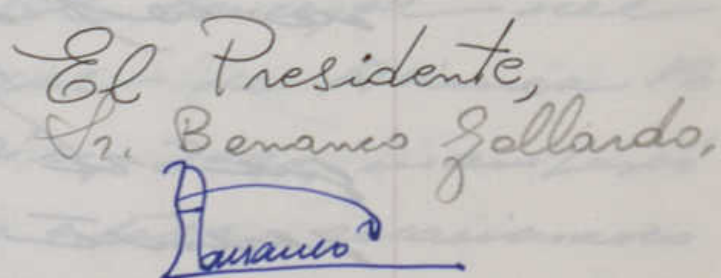 El Presidente,
Sr. Benanco Gallardo,